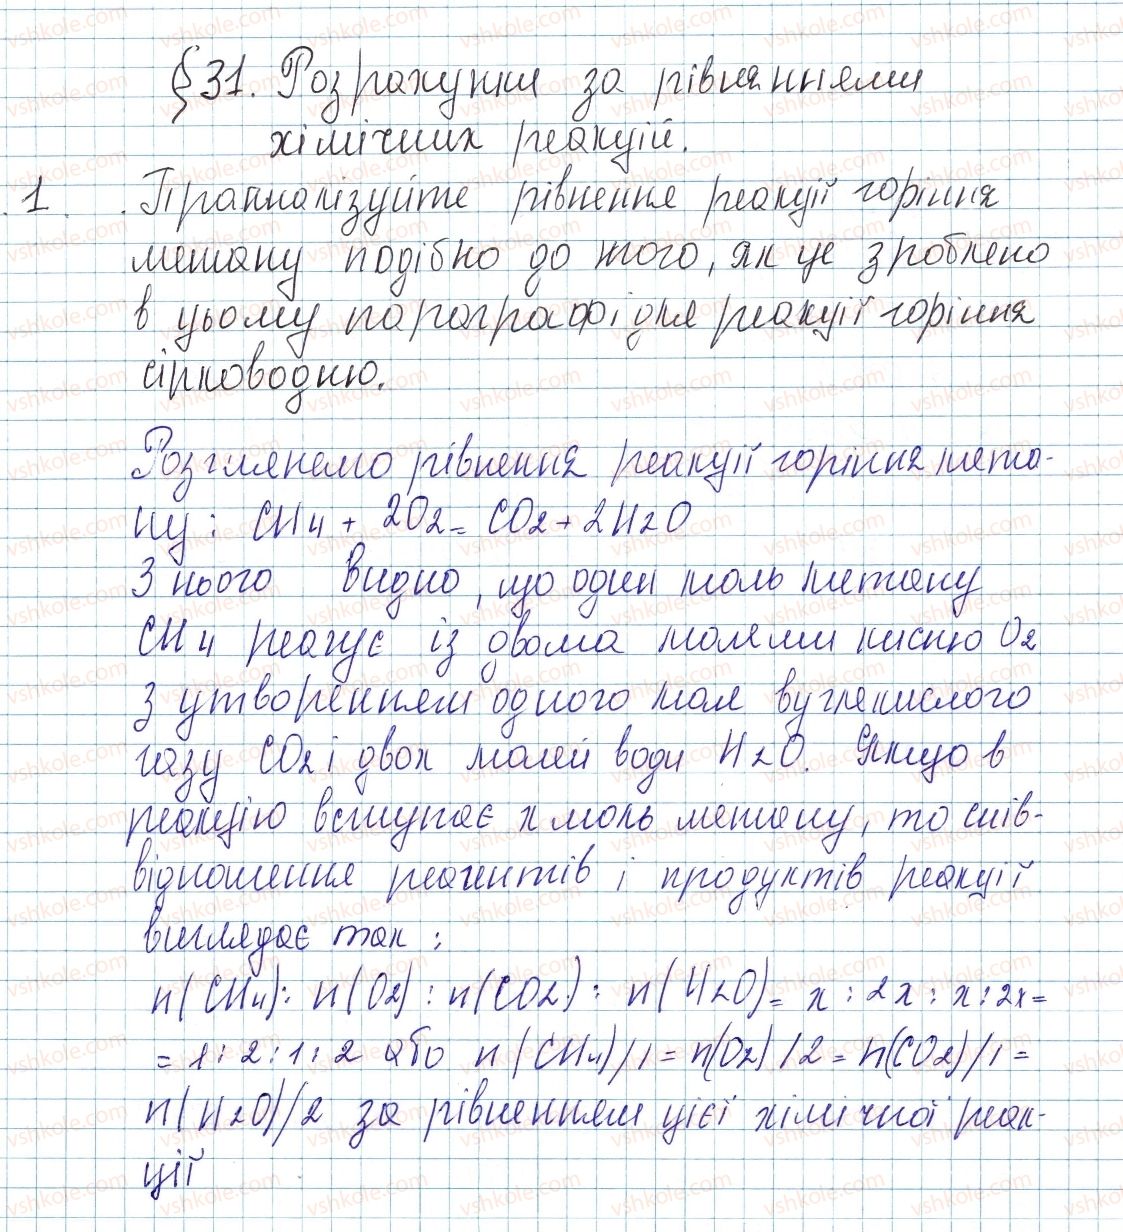 §31. Розрахунки за рівняннями
хімічних реакцій.
1. Проаналізуйте рівнення реакції горіння
метану подібно до того, як це зроблено
в цьому параграфі для реакції горіння
сірководню.
Розглянемо рівнення реакції горіння мета-
ну: CH4 + 2O2 = CO2 + 2H2O
З нього видно, що один моль метану
CH4 реагує із двома молями кисню O2
з утворенням одного моля вуглекислого
газу CO2 і двох молей води H2O. Якщо в
реакцію вступає x моль метану, то спів-
відношення реагентів і продуктів реакції
виглядає так:
n(CH4) : n(O2) : n(CO2) : n(H2O) = x : 2x : x : 2x =
= 1 : 2 : 1 : 2 або n(CH4)/1 = n(O2)/2 = n(CO2)/1 =
n(H2O)/2 за рівненням цієї хімічної реак-
ції